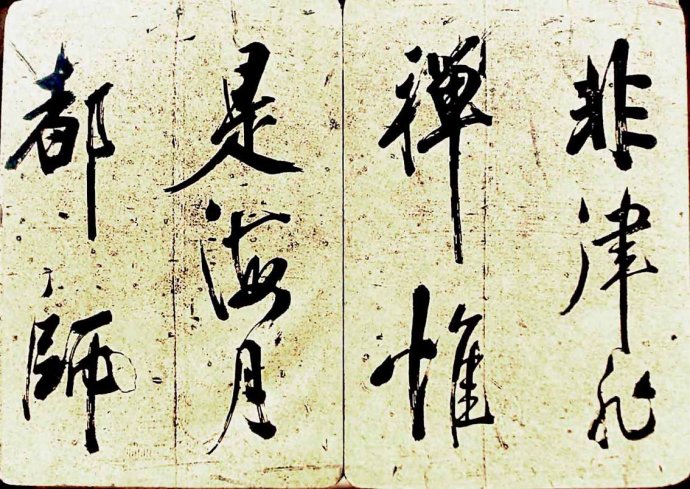 非律非
禪惟
是海月
都師